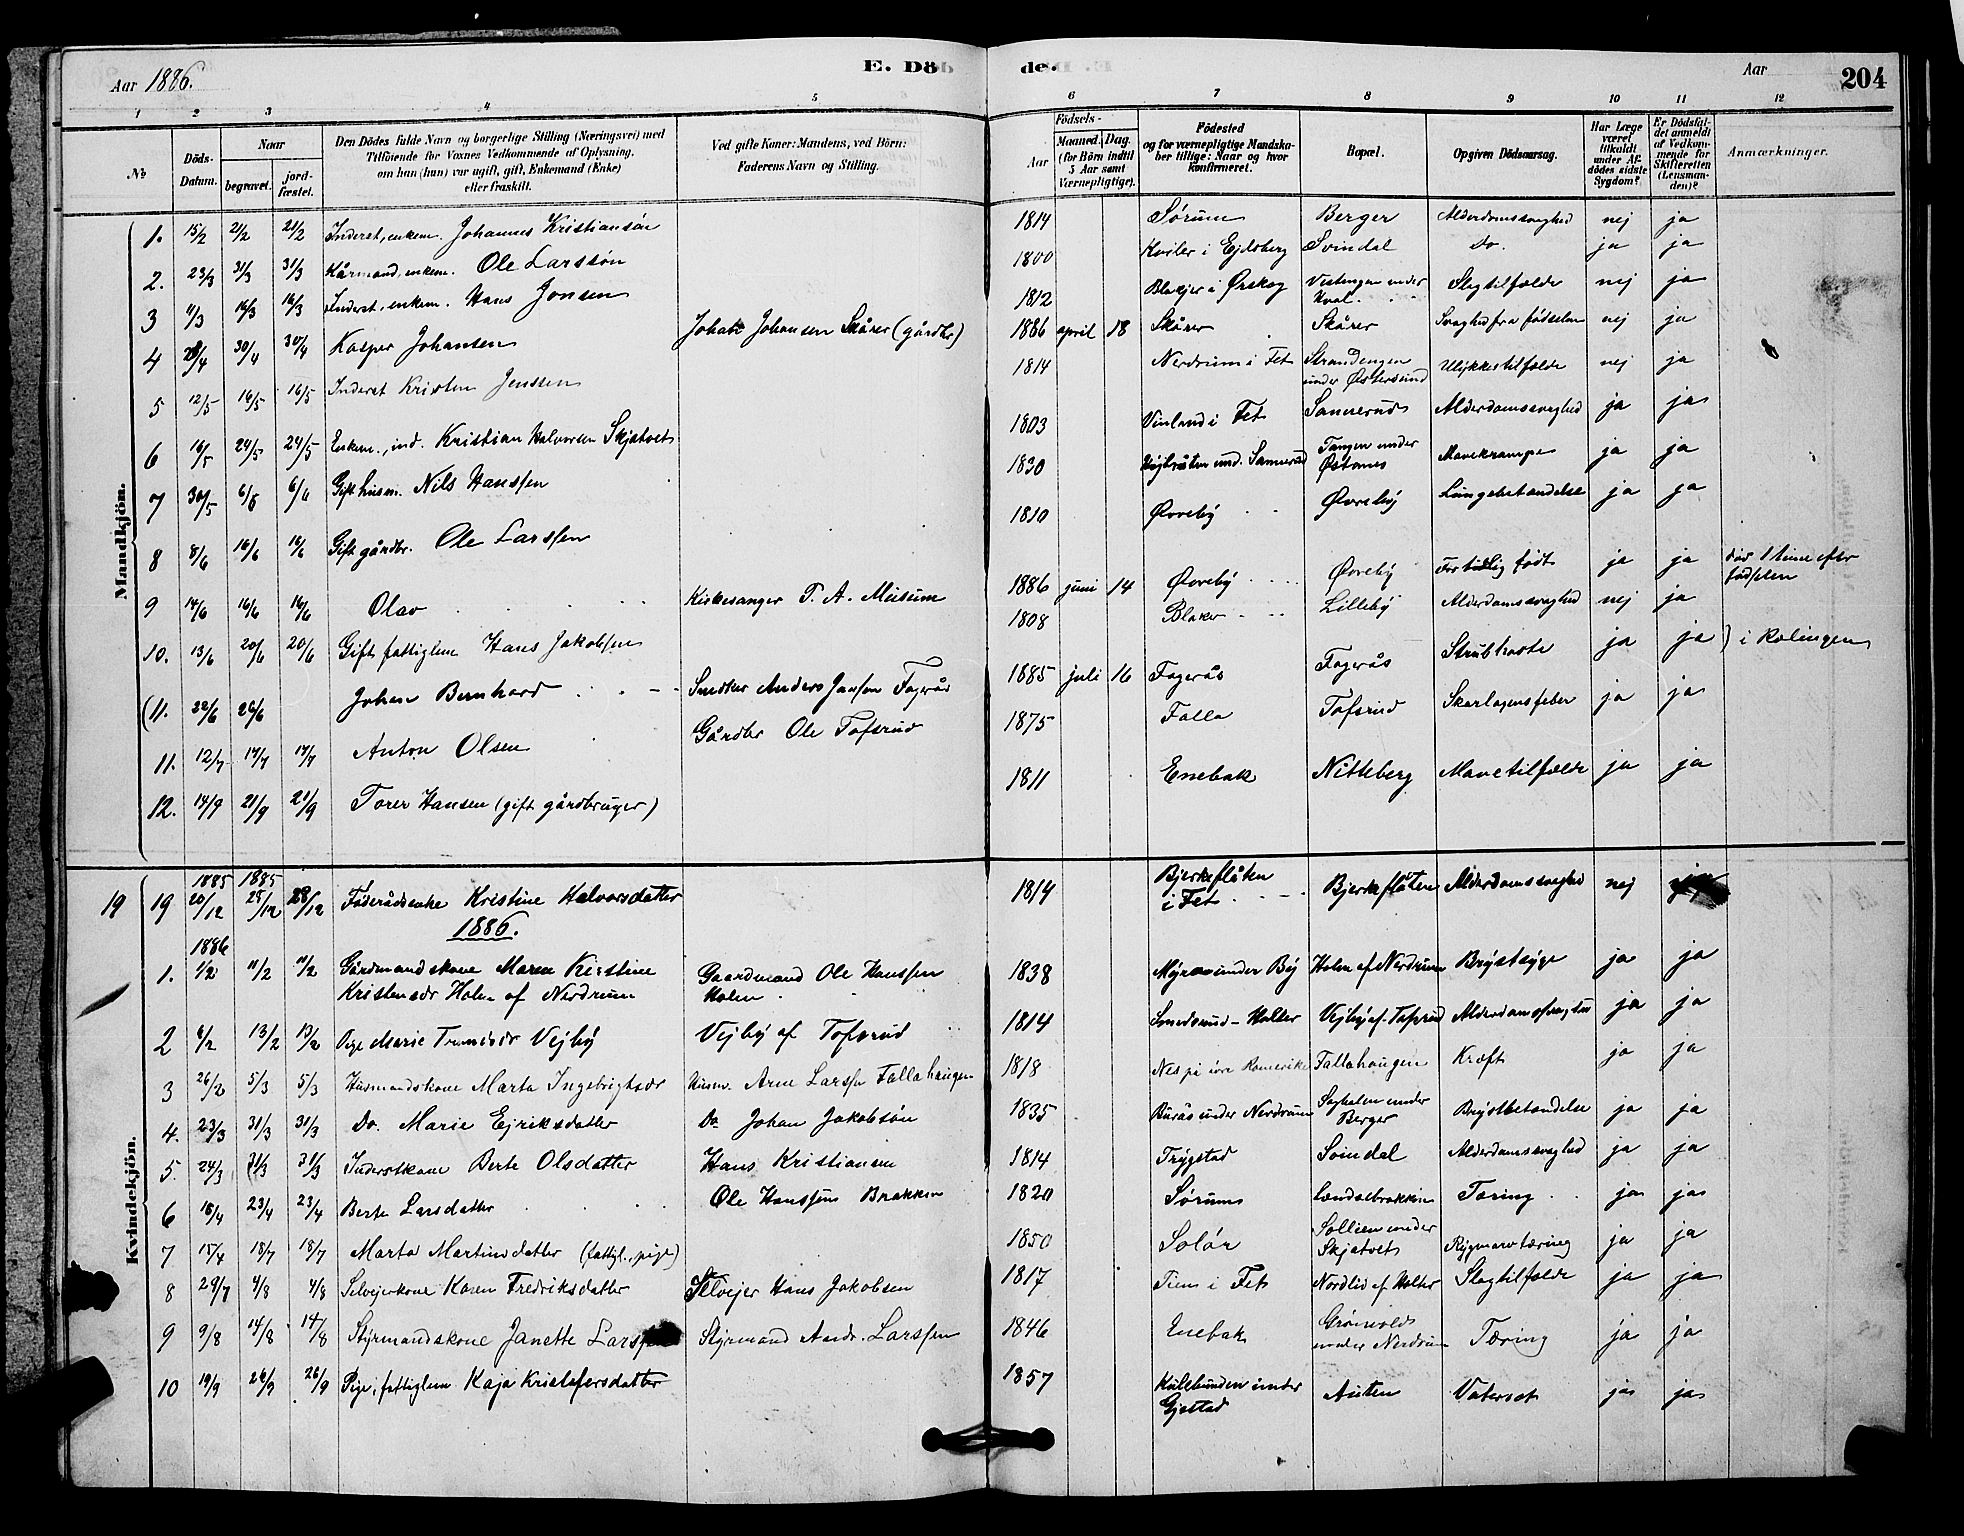 Aar 1886.
E. Döde.
Aar
204
1 2 3 4 5 6 7 8 9 10 11 12
№
Döds-Datum.
Naar
begravet.
jordfæstet.
Den Dödes fulde Navn og borgerlige Stilling (Næringsvei) med
Tilföiende for Voxnes Vedkommende af Oplysning,
om han (hun) var ugift, gift, Enkemand (Enke)
eller fraskilt.
Ved gifte Koner: Mandens, ved Börn:
Faderens Navn og Stilling.
Födsels-
Aar
Maaned. Dag.
(for Börn indtil
5 Aar samt
Værnepligtige).
Födested
og for værnepligtige Mandskaber tillige: Naar og hvor
konfirmeret.
Bopæl.
Opgiven Dödsaarsag.
Har Læge
været
tilkaldt
under Afdödes sidste
Sygdom?
Er Dödsfaldet anmeldt
af Vedkommende for
Skifteretten
(Lensmanden)?
Anmærkninger.
Mandkjön.
1. 15/2 21/2 21/2 Inderst, enkem. Johannes Kristiansön 1814 Sörum Berger Alderdomssvaghed nej ja
2. 23/3 31/3 31/3 Kårmand, enkem. Ole Larssön 1800 Kviler i Ejdsberg Svindal Do. ja ja
3 11/3 16/3 16/3 Inderst, enkem. Hans Jonsen 1812 Blakjer i Ørskog Vestengen under Hval Slagtilfælde nej ja
4 28/4 30/4 30/4 Kasper Johansen Johan Johansen Skårer (gårdbr) 1886 april 18 Skårer Skårer Svaghed fra födselen nej ja
5 12/5 16/5 16/5 Inderst Kristen Jenssen 1814 Nerdrum i Fet Strandengen under Østersund Ulykkestilfælde nej ja
6 16/5 24/5 24/5 Enkem., ind. Kristian Halvorsen Skjatvet 1803 Vinland i Fet Sannerud Alderdomssvaghed ja ja
7 30/5 6/6 6/6 Gift husm. Nils Hanssen 1830 und. Sannerud Tangen under Østanes Mavekrampe ja ja
8 8/6 16/6 16/6 Gift gårdbr. Ole Larssen 1810 Øvreby Øvreby Lungebetændelse ja ja
9 14/6 16/6 16/6 Olav Kirkesanger T. A. Musum 1886 juni 14 Øvreby Øvreby For tidlig födt ja ja död 1 time efter födselen
10. 13/6 20/6 20/6 Gift fattiglem Hans Jakobsen 1808 Blaker Lilleby Alderdomssvaghed nej ja
(11. 22/6 26/6 Johan Bernhard Snedker Anders Jansen Fagerås 1885 juli 16 Fagerås Fagerås Strubhoste ja ja ) i Rælingen
11. 12/7 17/7 17/7 Anton Olsen Gårdbr Ole Tofsrud 1875 Falla Tofsrud Skarlagensfeber ja ja
12. 14/9 21/9 21/9 Torer Hansen (gift gårdbruger) 1811 Enebak Nitteberg Mavetilfælde ja ja
Kvindekjön.
19 19 1885 20/12 1885 25/12 28/12 Föderådsenke Kristine Halvorsdatter 1814 Bjerkeflåten i Fet Bjerkeflåten Alderdomssvaghed nej ja
1886.
1886
1. 1/2 11/2 11/2 Gårdmandskone Maren Kristine Kristensdr Holen af Nerdrum Gaardmand Ole Hanssen Holen 1838 Myra under By Holen af Nerdrum Brystsyge ja ja
2 6/2 13/2 13/2 Pige Marie Vejby Vejby af Tofsrud 1814 Smedsrud - Holter Vejby af Tofsrud ja ja
3 26/2 5/3 5/3 Husmandskone Marta Ingebrigtsdr Husm. Arne Larssen Fallahaugen 1818 Nes på övre Romerike Fallahaugen Kræft ja ja
4. 23/3 31/3 31/3 Do. Marie Ejriksdatter Do Johan Jakobsön 1835 Burås under Nerdrum Saghalen under Berger Brystbetændelse ja ja
5. 24/3 31/3 31/3 Inderstkone Berte Olsdatter Hans Kristiansen 1814 Trygstad Svindal Alderdomssvaghed ja ja
6 18/4 23/4 23/4 Berte Larsdatter Ole Hanssens Brakken 1820 Sörum Tæring ja ja
7 15/4 18/7 18/7 Marta Martinsdatter (fattigl., pige) 1850 Solör Sollien under Skjatvet Rygmarvtæring ja ja
8 29/7 4/8 4/8 Selvejerkone Karen Fredriksdatter Selvejer Hans Jakobsen 1817 Tien i Fet Nordlid af Holter Slagtilfælde ja ja
9 9/8 14/8 14/8 Styrmandskone Janette Larssen Styrmand Andr. Larssen 1846 Enebak Grönvold under Nerdrum Tæring ja ja
10 19/9 26/9 26/9 Pige, fattiglem Kaja Kristofersdatter 1857 Kullebunden under Gjestad Auten Vatersot ja ja